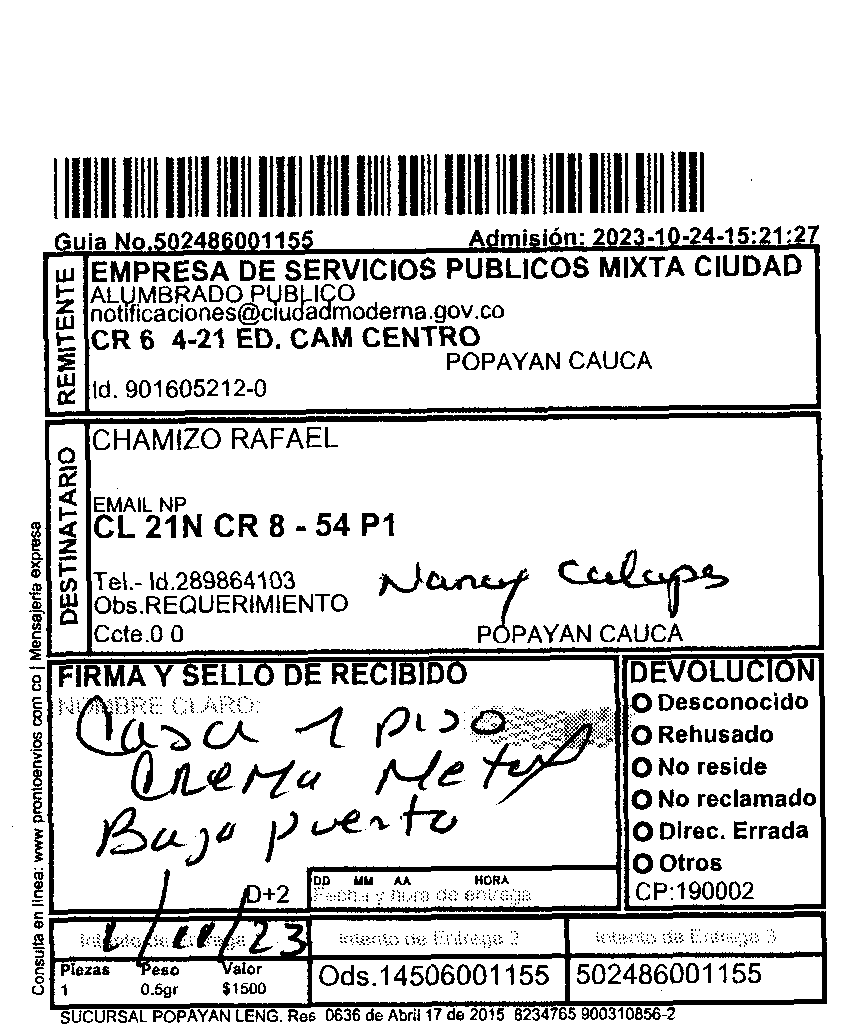 Guia No.502486001155 Admisión: 2023-10-24-15:21:27
REMITENTE
EMPRESA DE SERVICIOS PUBLICOS MIXTA CIUDAD
ALUMBRADO PUBLICO
notificaciones@ciudadmoderna.gov.co
CR 6 4-21 ED. CAM CENTRO
POPAYAN CAUCA
Id. 901605212-0
DESTINATARIO
CHAMIZO RAFAEL
EMAIL NP
CL 21N CR 8 - 54 P1
Tel.- Id.289864103
Nancy
Obs.REQUERIMIENTO
Ccte.0 0 POPAYAN CAUCA
Consulta en línea: www prontoenvios com co | Mensajería expresa
FIRMA Y SELLO DE RECIBIDO
NOMBRE CLARO:
Casa 1 piso
Crema
Bajo puerta
D+2
DD MM AA HORA
Fecha y hora de entrega
DEVOLUCION
Desconocido
Rehusado
No reside
No reclamado
Direc. Errada
Otros
CP:190002
Intento de Entrega
1/11/23
Intento de Entrega 2
Intento de Entrega 3
Piezas Peso Valor
1 0.5gr $1500
Ods.14506001155
502486001155
SUCURSAL POPAYAN LENG. Res 0636 de Abril 17 de 2015 8234765 900310856-2